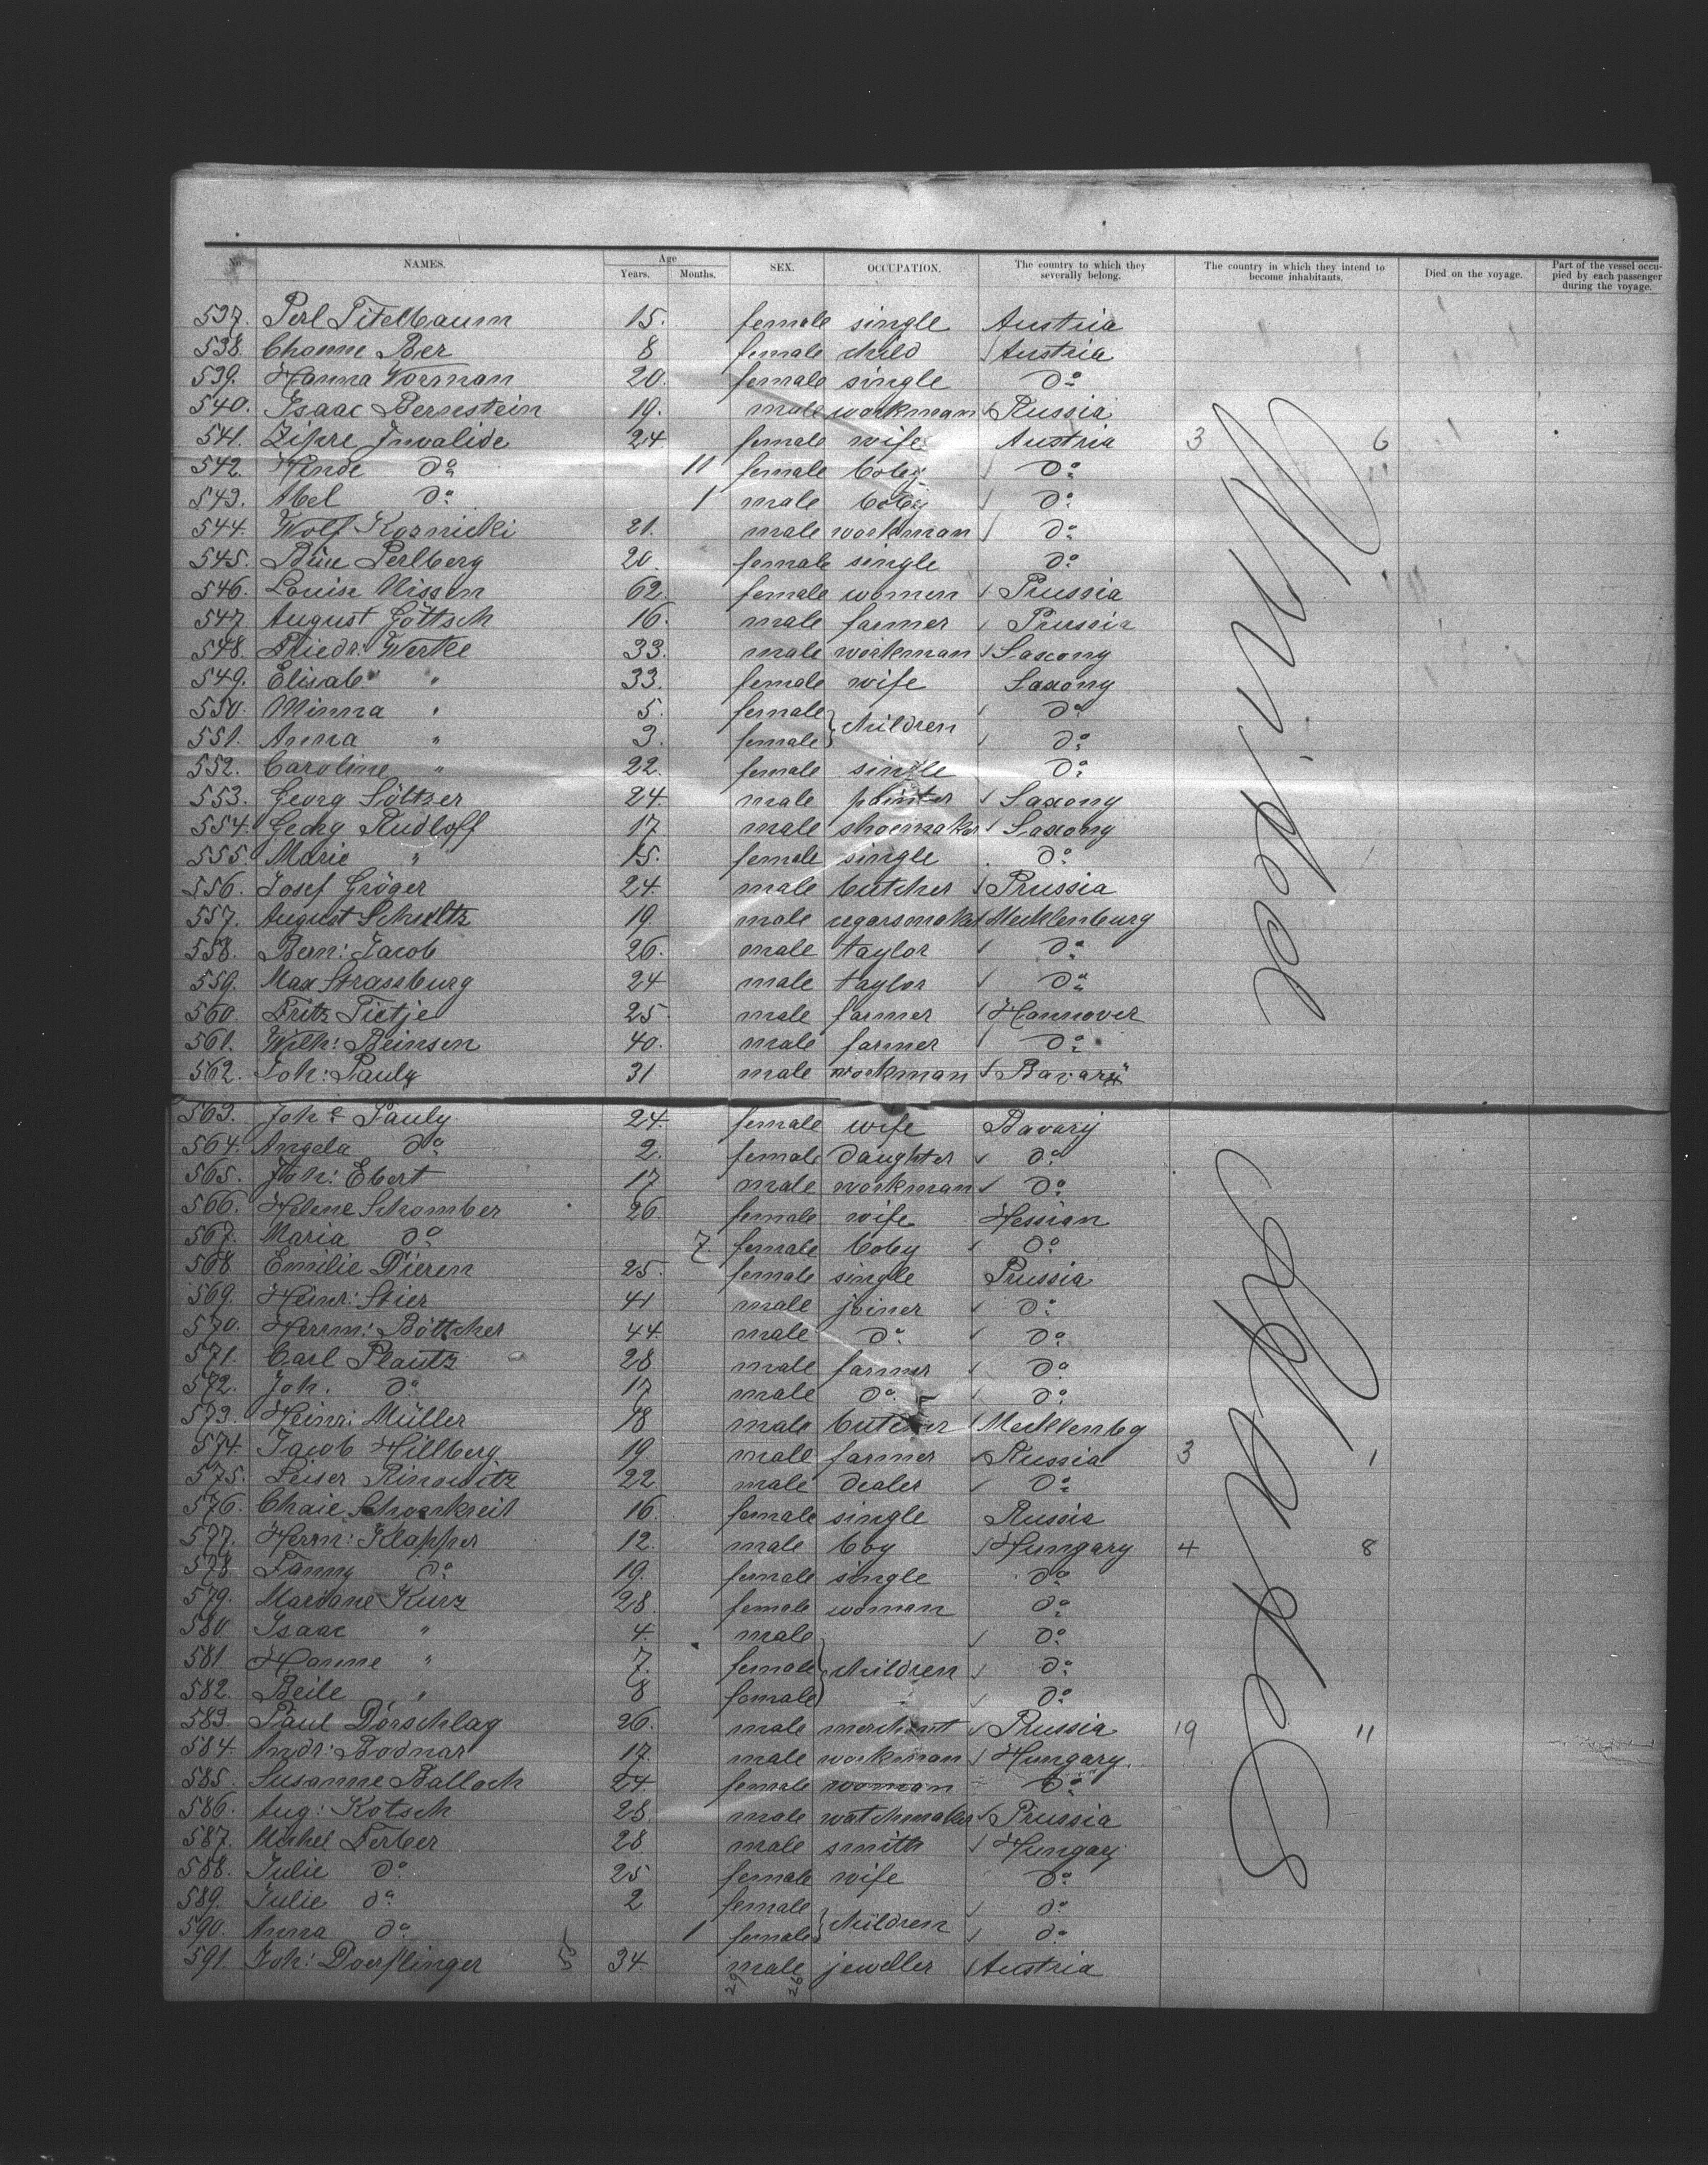 No. NAMES. Age Years. Months. SEX. OCCUPATION. The country to which they severally belong. The country in which they intend to become inhabitants. Died on the voyage. Part of the vessel occupied by each passenger during the voyage.
537. Perl Titelbaum 15. female single Austria
538. Channe Ber 8 female child Austria
539. Hanna Vorman 20. female single do
540. Isaac Bernstein 19. male workman Russia
541. Zipre Invalide 24 female wife Austria 3 6
542. Hinde do 11 female baby do
543. Abel do 1 male baby do
544. Wolf Kosnicki 21. male workman do
545. Perlberg 20. female single do
546. Louise Nissen 62. female women Prussia
547. August Göttsch 16. male farmer Prussia
548. Friedr: Werke 33. male workman Saxony
549. Elisab: " 33. female wife Saxony
550. Minna " 5. female children do
551. Anna " 3. female do
552. Caroline " 22. female single do
553. Georg Söltzer 24. male painter Saxony
554. Georg Rudloff 17 male shoemaker Saxony
555. Marie " 15. female single do
556. Josef Gröger 24 male butcher Prussia
557. August Schultz 19 male cigarsmaker Mecklenburg
558. Bern: Jacob 26. male taylor do
559. Max Strassburg 24 male taylor do
560. Fritz Tietje 25 male farmer Hannover
561. Wilh: Beinsen 40. male farmer do
562. Joh: Pauly 31 male workman Bavary
563. Joh: Pauly 24. female wife Bavary
564. Angela do 2. female daughter do
565. Joh: Ebert 17 male workman do
566. Helene Schamber 26. female wife Hessian
567. Maria do 7. female baby do
568. Emilie Dieren 25. female single Prussia
569. Heinr: Stier 41 male joiner do
570. Herrm: Böttcher 44. male do do
571. Carl Plautz 28 male farmer do
572. Joh. do 17 male do do
573. Heinr: Müller 18 male butcher Mecklenbg
574. Jacob Hillberg 19. male farmer Russia 3 1
575. Leiser Rinowitz 22 male dealer do
576. Chaie 16. female single Russia
577. Herrn: Klapper 12. male boy Hungary 4 8
578. Fanny do 19. female single do
579. Mariane Kurz 28. female woman do
580. Isaac " 4. male do
581. Hanne " 7. female children do
582. Beile " 8 female do
583. Paul Dorschlag 26. male merchant Prussia 19 11
584. Andr: Bodnar 17. male workman Hungary.
585. Susanne Balloch 24. female woman do
586. Aug: Kotsch 28. male watchmaker Prussia
587. Michel Ferber 28 male smith Hungary
588. Julie do 25 female wife do
589. Julie do 2 female do
590. Anna do 1 female children do
591. Joh: Doerflinger 55 34. male jeweller Austria
29 26